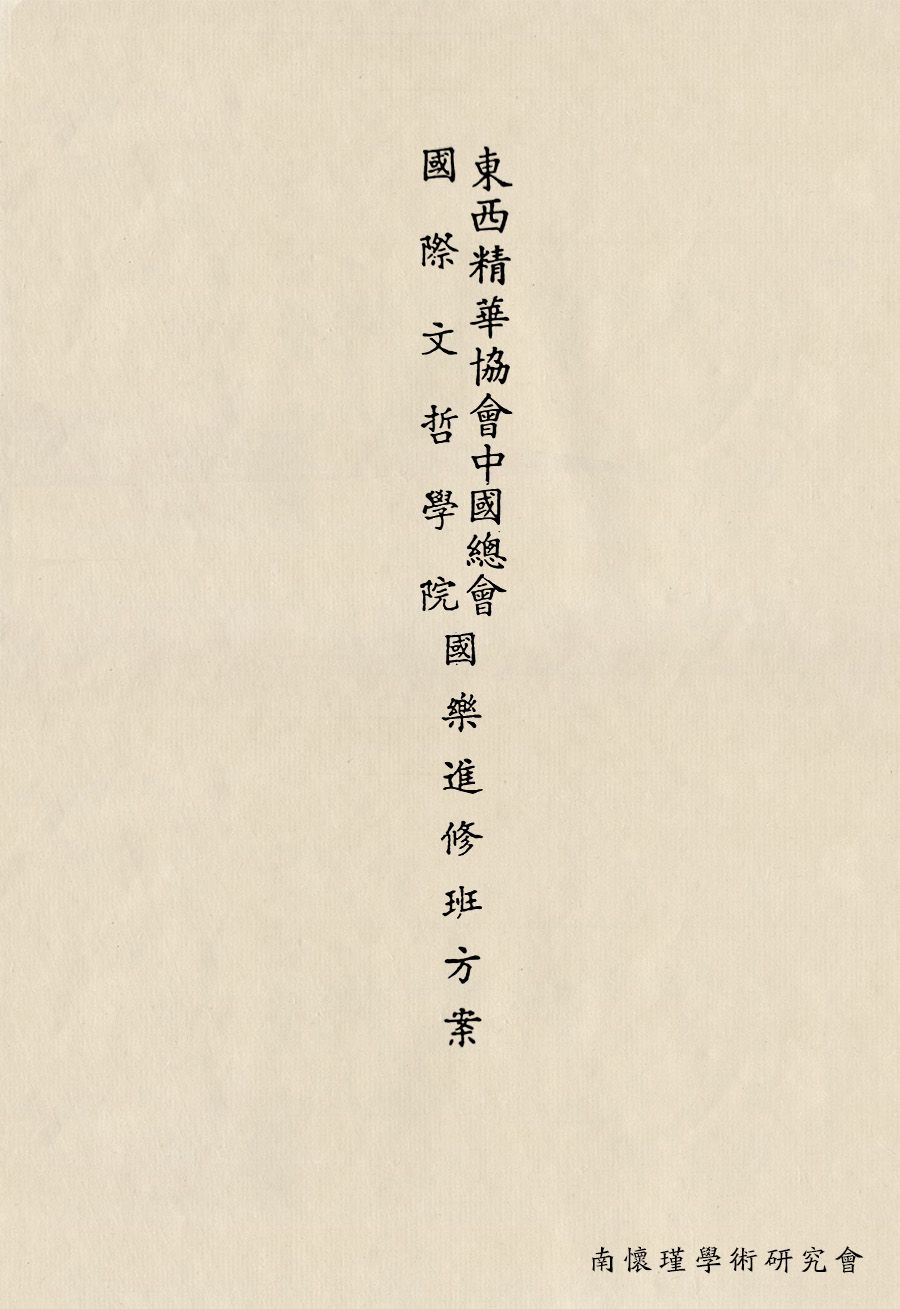 東西精華協會中國總會
國際文哲學院
國樂進修班方案
南懷瑾學術研究會